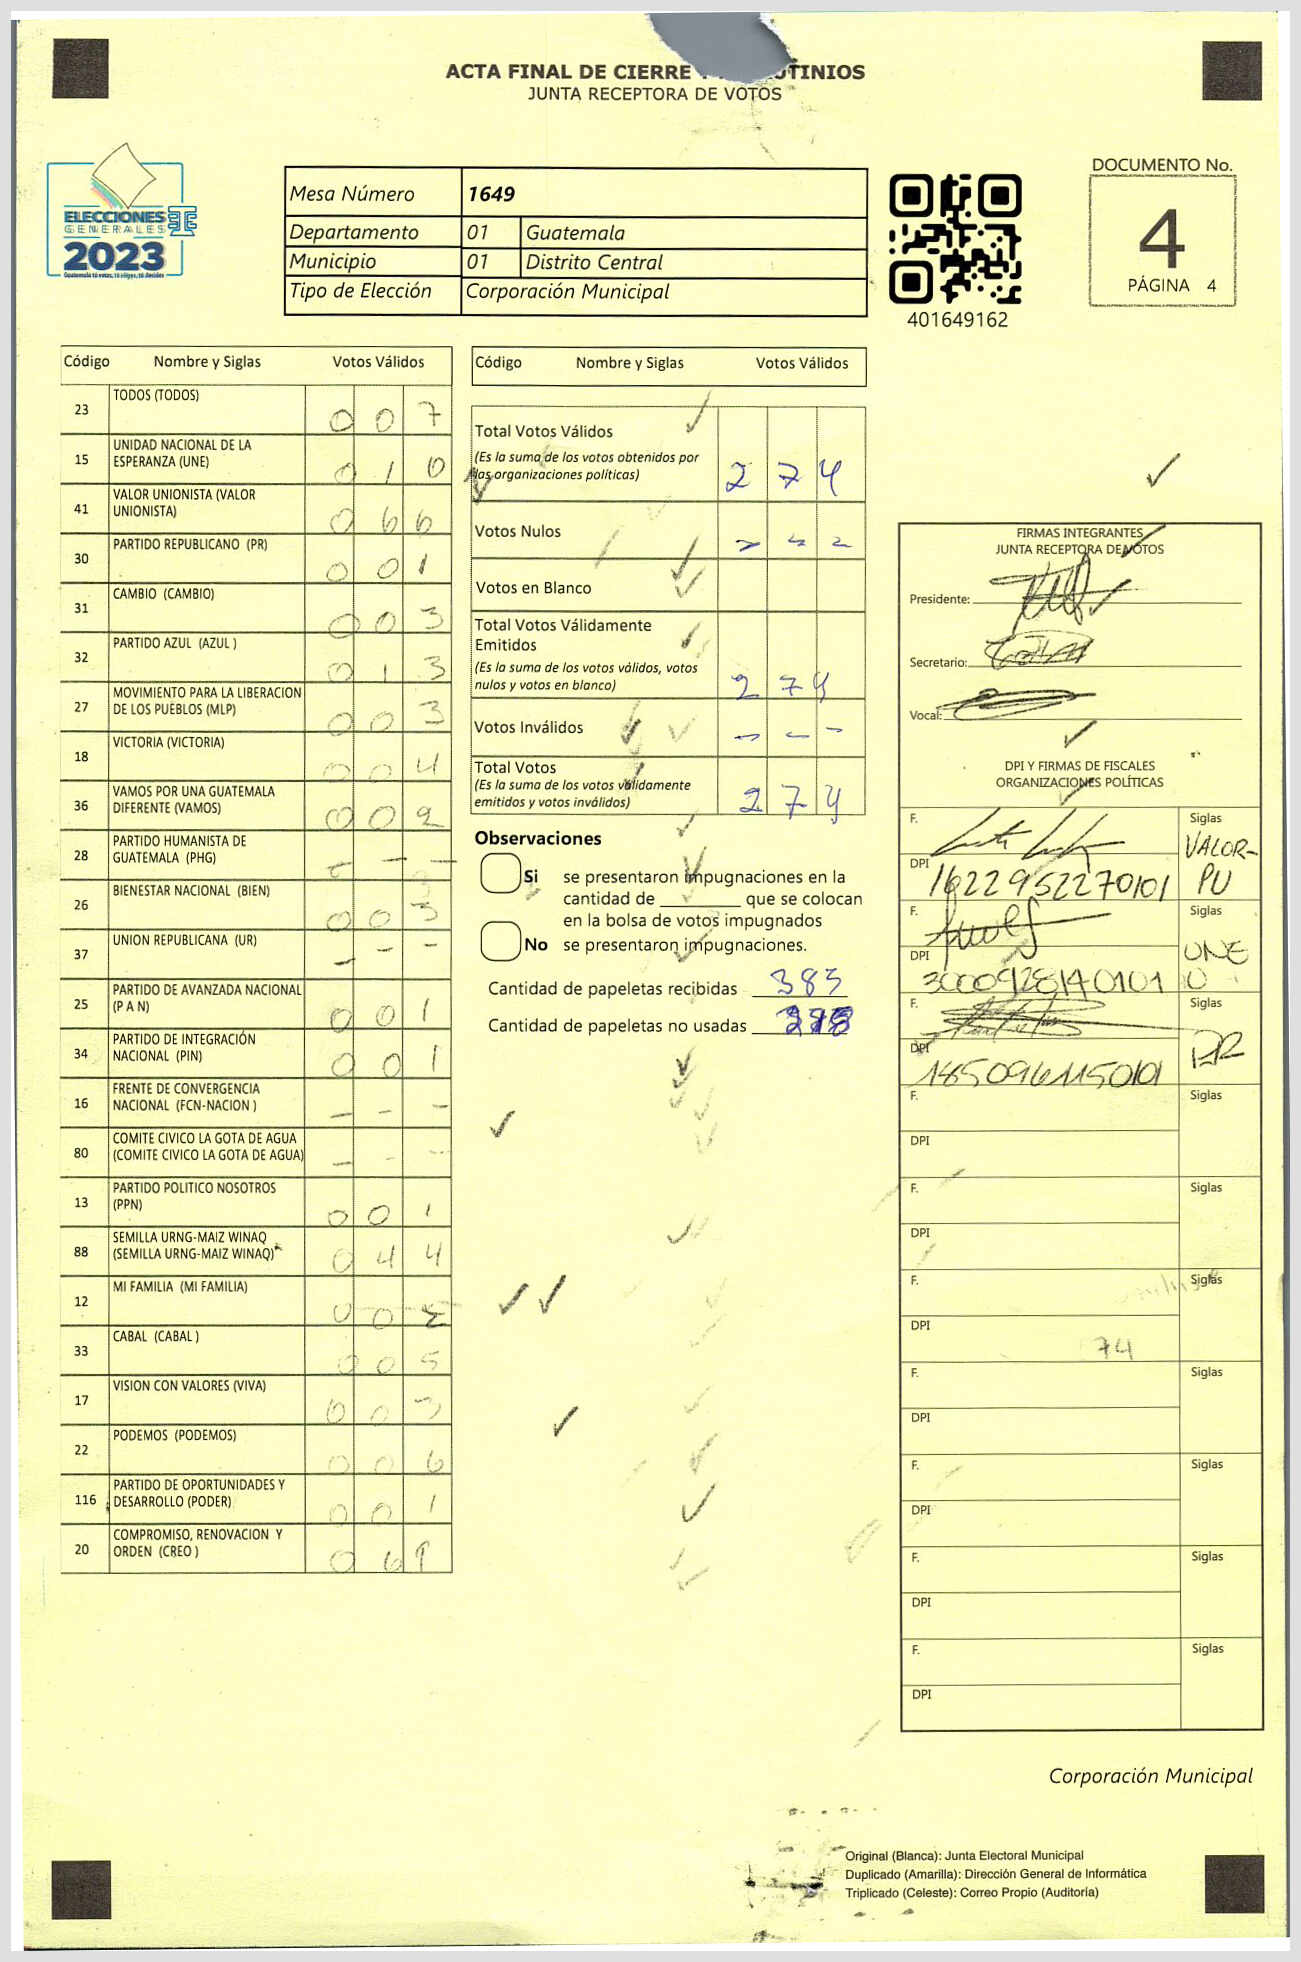 ACTA FINAL DE CIERRE Y
JUNTA RECEPTORA DE VOTOS
ELECCIONES
GENERALES
2023
Guatemala tú votas, tú eliges, tú decides
Mesa Número 1649
Departamento 01 Guatemala
Municipio 01 Distrito Central
Tipo de Elección Corporación Municipal
401649162
DOCUMENTO No.
4
PÁGINA 4
Código Nombre y Siglas Votos Válidos
23 TODOS (TODOS) 0 0 7
15 UNIDAD NACIONAL DE LA
ESPERANZA (UNE) 0 1 0
41 VALOR UNIONISTA (VALOR
UNIONISTA) 0 6 6
30 PARTIDO REPUBLICANO (PR) 0 0 1
31 CAMBIO (CAMBIO) 0 0 3
32 PARTIDO AZUL (AZUL ) 0 1 3
27 MOVIMIENTO PARA LA LIBERACION
DE LOS PUEBLOS (MLP) 0 0 3
18 VICTORIA (VICTORIA) 0 0 4
36 VAMOS POR UNA GUATEMALA
DIFERENTE (VAMOS) 0 0 2
28 PARTIDO HUMANISTA DE
GUATEMALA (PHG) - - -
26 BIENESTAR NACIONAL (BIEN) 0 0 3
37 UNION REPUBLICANA (UR) - - -
25 PARTIDO DE AVANZADA NACIONAL
(P A N) 0 0 1
34 PARTIDO DE INTEGRACIÓN
NACIONAL (PIN) 0 0 1
16 FRENTE DE CONVERGENCIA
NACIONAL (FCN-NACION ) - - -
80 COMITE CIVICO LA GOTA DE AGUA
(COMITE CIVICO LA GOTA DE AGUA) - - -
13 PARTIDO POLITICO NOSOTROS
(PPN) 0 0 1
88 SEMILLA URNG-MAIZ WINAQ
(SEMILLA URNG-MAIZ WINAQ) 0 4 4
12 MI FAMILIA (MI FAMILIA) 0 0
33 CABAL (CABAL ) 0 0 5
17 VISION CON VALORES (VIVA) 0 0 3
22 PODEMOS (PODEMOS) 0 0 6
116 PARTIDO DE OPORTUNIDADES Y
DESARROLLO (PODER) 0 0 1
20 COMPROMISO, RENOVACION Y
ORDEN (CREO ) 0 6
Código Nombre y Siglas Votos Válidos
Total Votos Válidos
(Es la suma de los votos obtenidos por
las organizaciones políticas) 2 7 4
Votos Nulos - - -
Votos en Blanco
Total Votos Válidamente
Emitidos
(Es la suma de los votos válidos, votos
nulos y votos en blanco) 2 7 4
Votos Inválidos - - -
Total Votos
(Es la suma de los votos válidamente
emitidos y votos inválidos) 2 7 4
Observaciones
Si se presentaron impugnaciones en la
cantidad de ________ que se colocan
en la bolsa de votos impugnados
No se presentaron impugnaciones.
Cantidad de papeletas recibidas 383
Cantidad de papeletas no usadas
FIRMAS INTEGRANTES
JUNTA RECEPTORA DE VOTOS
Presidente:
Secretario:
Vocal:
DPI Y FIRMAS DE FISCALES
ORGANIZACIONES POLÍTICAS
F. Siglas
VALOR-
PU
DPI 1622952270101
F. Siglas
UNE
DPI 3000928140101
F. Siglas
PR
DPI 1850961150101
F. Siglas
DPI
F. Siglas
DPI
F. Siglas
DPI
74
F. Siglas
DPI
F. Siglas
DPI
F. Siglas
DPI
F. Siglas
DPI
Corporación Municipal
Original (Blanca): Junta Electoral Municipal
Duplicado (Amarilla): Dirección General de Informática
Triplicado (Celeste): Correo Propio (Auditoría)